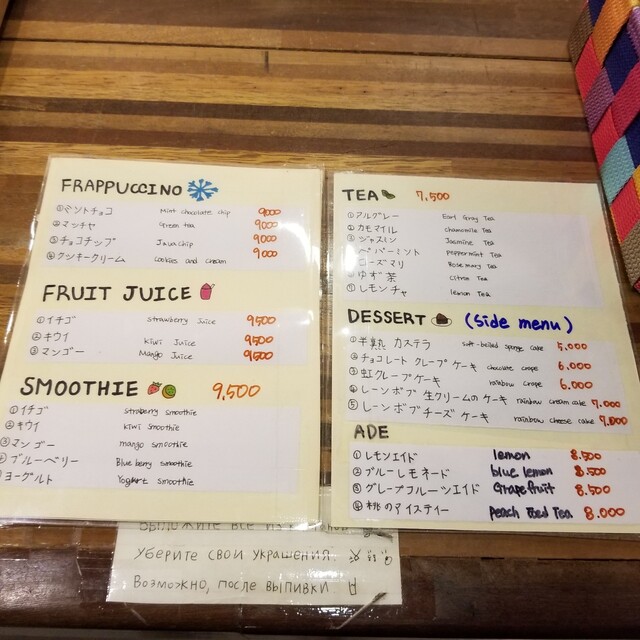 FRAPPUCCINO
①ミントチョコ Mint chocolate chip 9000
②マッチヤ Green tea 9000
③チョコチップ Java chip 9000
④クッキークリーム cookies and cream 9000
FRUIT JUICE
①イチゴ strawberry Juice 9500
②キウイ kiwi Juice 9500
③マンゴー Mango Juice 9500
SMOOTHIE 9,500
①イチゴ straberry smoothie
②キウイ kiwi smoothie
③マンゴー mango smoothie
④ブルーベリー Blueberry smoothie
ヨーグルト Yogurt smoothie
TEA 7,500
①アルグレー Earl Gray Tea
②カモマイル chamomile Tea
③ジャスミン Jasmine Tea
ペパーミント Peppermint Tea
ローズマリ Rosemary Tea
ゆず茶 citron Tea
レモンチャ lemon Tea
DESSERT (side menu)
①半熟 カステラ soft-boiled sponge cake 5,000
②チョコレート クレープケーキ chocolate crape 6,000
③虹クレープケーキ rainbow crape 6,000
④レーンボブ 生クリームのケーキ rainbow cream cake 7,000
⑤レーンボブチーズケーキ rainbow cheese cake 7,000
ADE
①レモンエイド lemon 8,500
②ブルーレモネード blue lemon 8,500
③グレープフルーツエイド Grapefruit 8,500
④桃のアイスティー peach Iced Tea 8,000
Уберите свои украшения.
Возможно, после выпивки